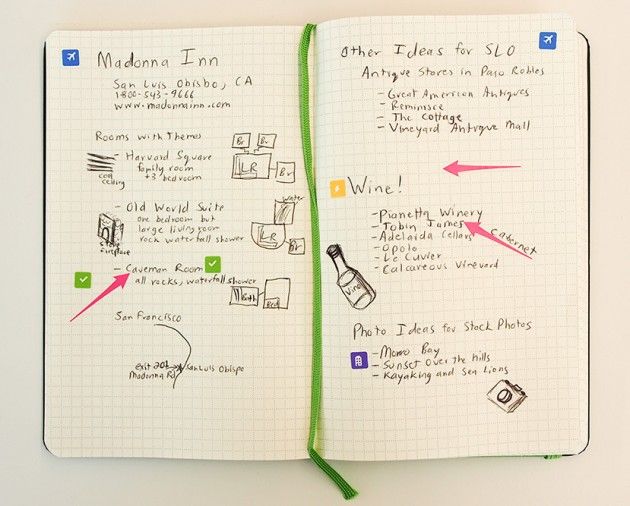 Madonna Inn
San Luis Obisbo, CA
1-800-543-9666
www.madonnainn.com
Rooms with Themes
- Harvard Square
family room
+3 bedroom
cool
ceiling
Br
Br
LR
Br
- Old World Suite
one bedroom but
large living room
rock waterfall shower
stone
fireplace
Water
LR
Br
- Caveman Room
all rocks, waterfall shower
Bath
Bed
San Francisco
exit 201
Madonna Rd
San Luis Obispo
Other Ideas for SLO
Antique Stores in Paso Robles
- Great American Antiques
- Reminisce
- The Cottage
- Vineyard Antique Mall
Wine!
- Pianetta Winery
- Tobin James
- Adelaida Cellars
Cabernet
- Opolo
- Le Cuvier
- Calcareous Vineyard
Wine
Photo Ideas for Stock Photos
- Morro Bay
- Sunset Over the hills
- Kayaking and Sea Lions